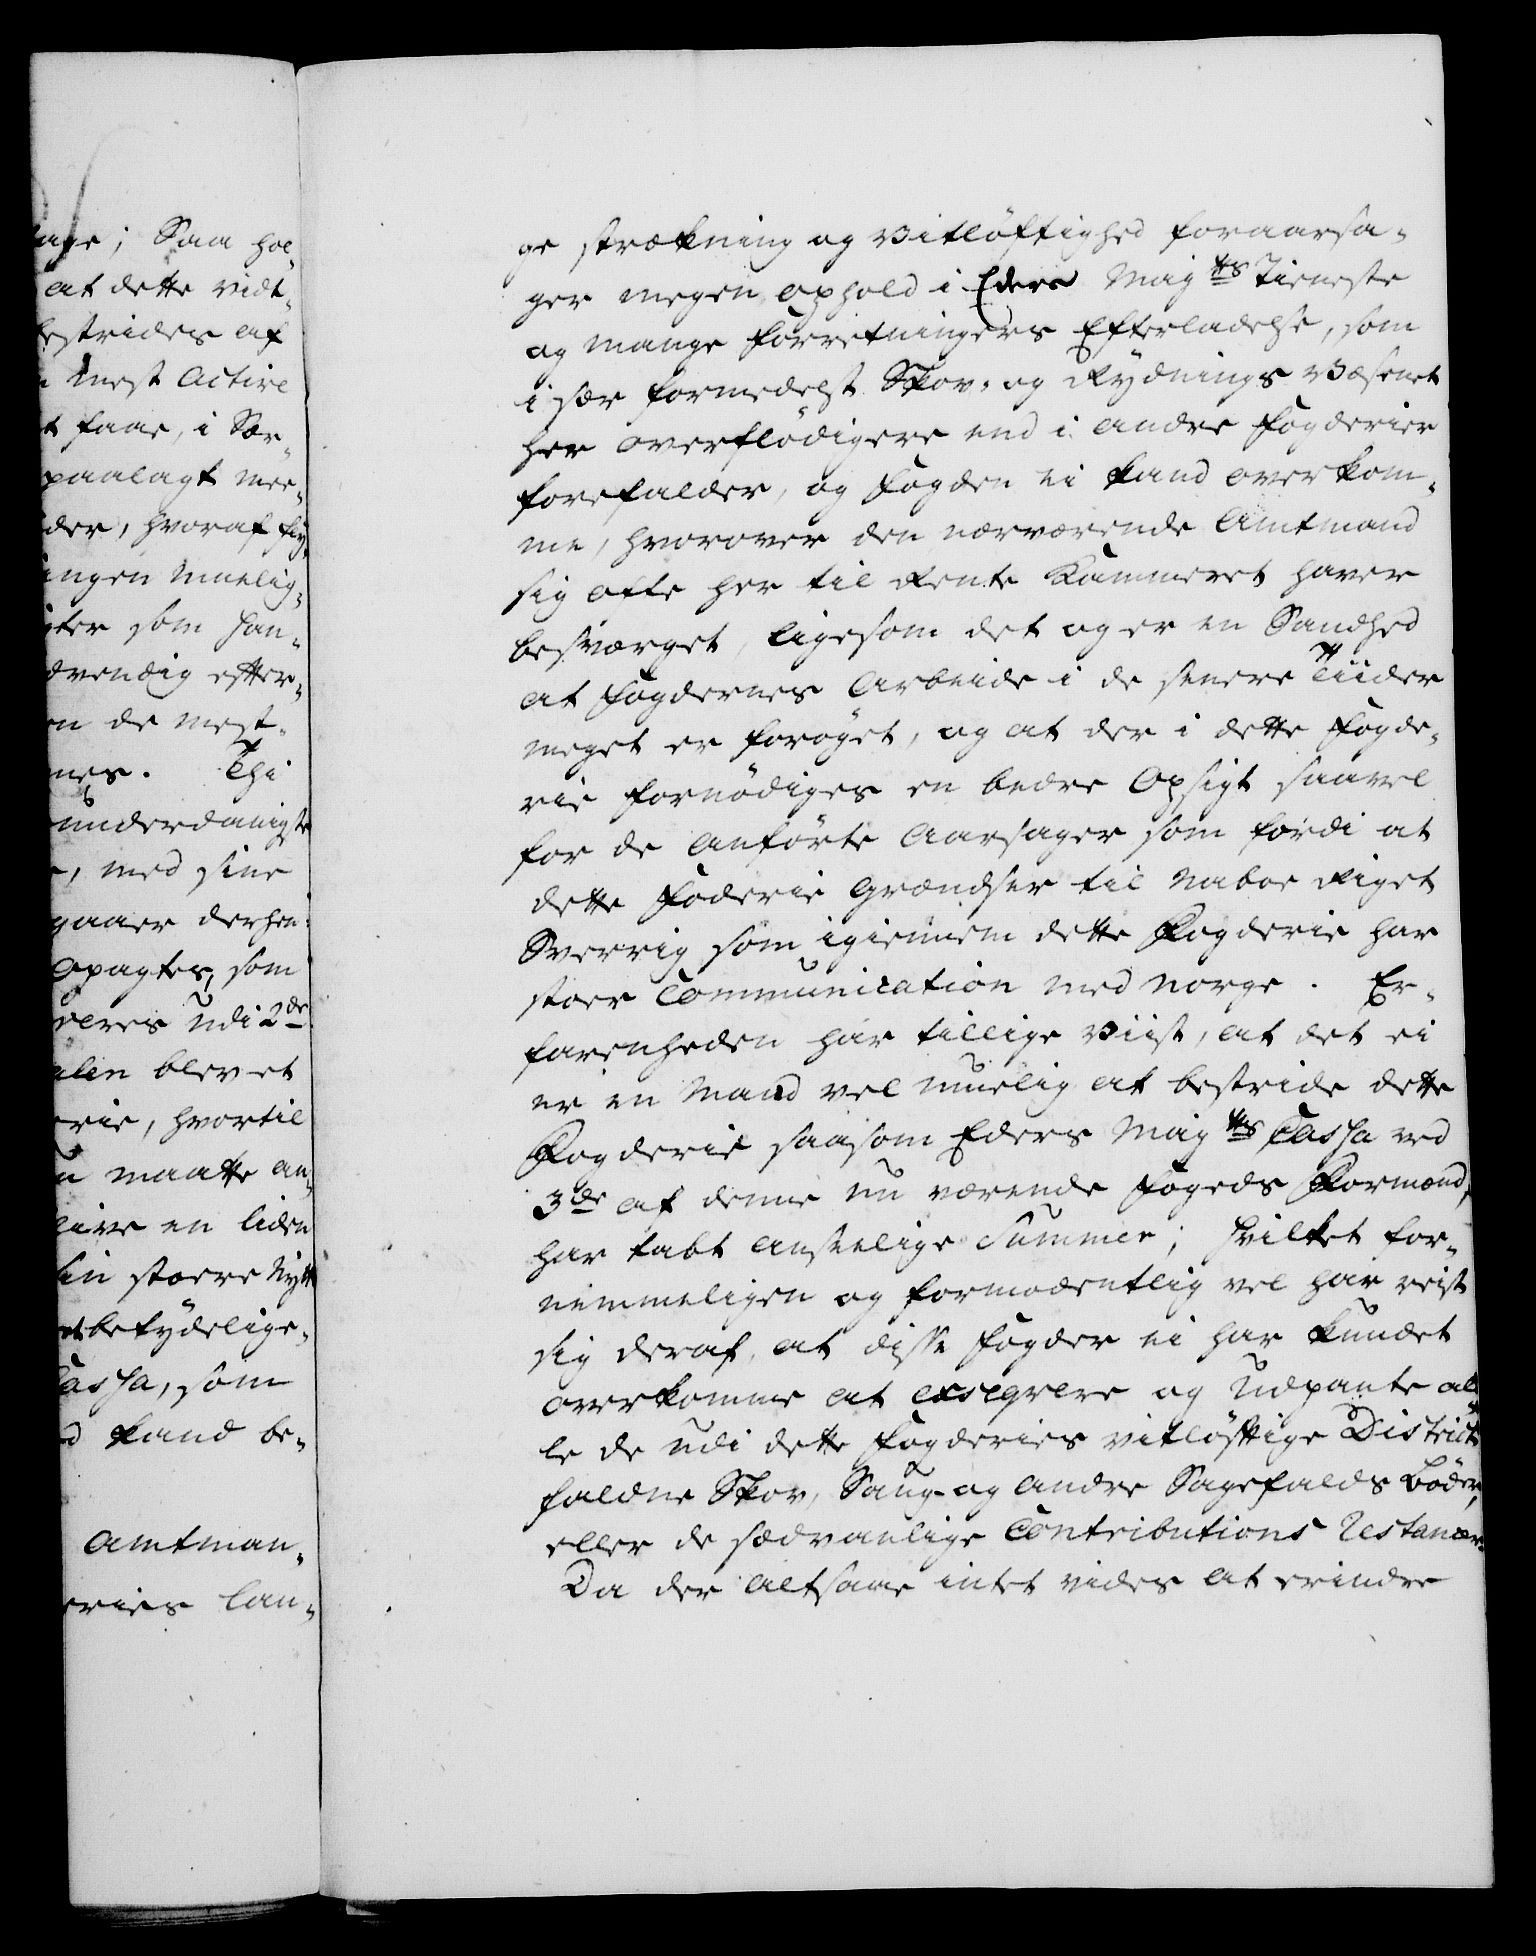 age; Saa hol¬
at dette vidt¬
bestrides af
mest active
t faae, i Sær¬
paalagt mee¬
der, hvoraf fly¬
ingen muelig¬
gter som han¬
dvendig efter¬
en de mest¬
nes. Thi
underdanigste
, med sine
gaaer derhen
Opagter, som
deres udi 2de
alen blevet
erie, hvortil
n maatte an¬
blive en liden
sin stoere Nytte
ubetydelige¬
Cassa, som
d kand be¬
Amtman¬
eries Lan¬
ge strækning og Vitløftighed foraarsa¬
ger megen ophold i Eders Mayts Tieneste
og mange Forretningers Efterladelse, som
i sær formedelst Skov- og Rydnings Væsenet
her overflødigere end i andre Fogderier
forefalder, og Fogden ei kand overkom¬
me, hvorover den nærværende Amtmand
sig ofte her til Rente Kammeret haver
besværget, ligesom det og er en Sandhed
at Fogdernes Arbeide i de senere Tiider
meget er forøget, og at der i dette Fogde¬
rie fornødiges en bedre Opsigt saavel
for de anførte Aarsager som fordi at
dette Foderie Grændser til Naboe Riget
Sverrig som igiennem dette Fogderie har
stoer Communication med Norge. Er¬
farenheden har tillige Viist, at det ei
er en Mand vel muelig at bestride dette
Fogderie saasom Eders Mayts Cassa ved
3de af denne nu værende Fogeds Formænd,
har tabt anseelige Summer; hvilket for¬
nemmeligen og formodentlig vel har reist
sig deraf, at disse Fogder ei har kundet
overkomme at exseqvere og Udpante al¬
le de udi dette Fogderies vitløftige District
faldne Skov, Saug og andre Sagefalds Bøder,
eller de sædvanlige Contributions Restancer.
Da der altsaae intet vides at erindre